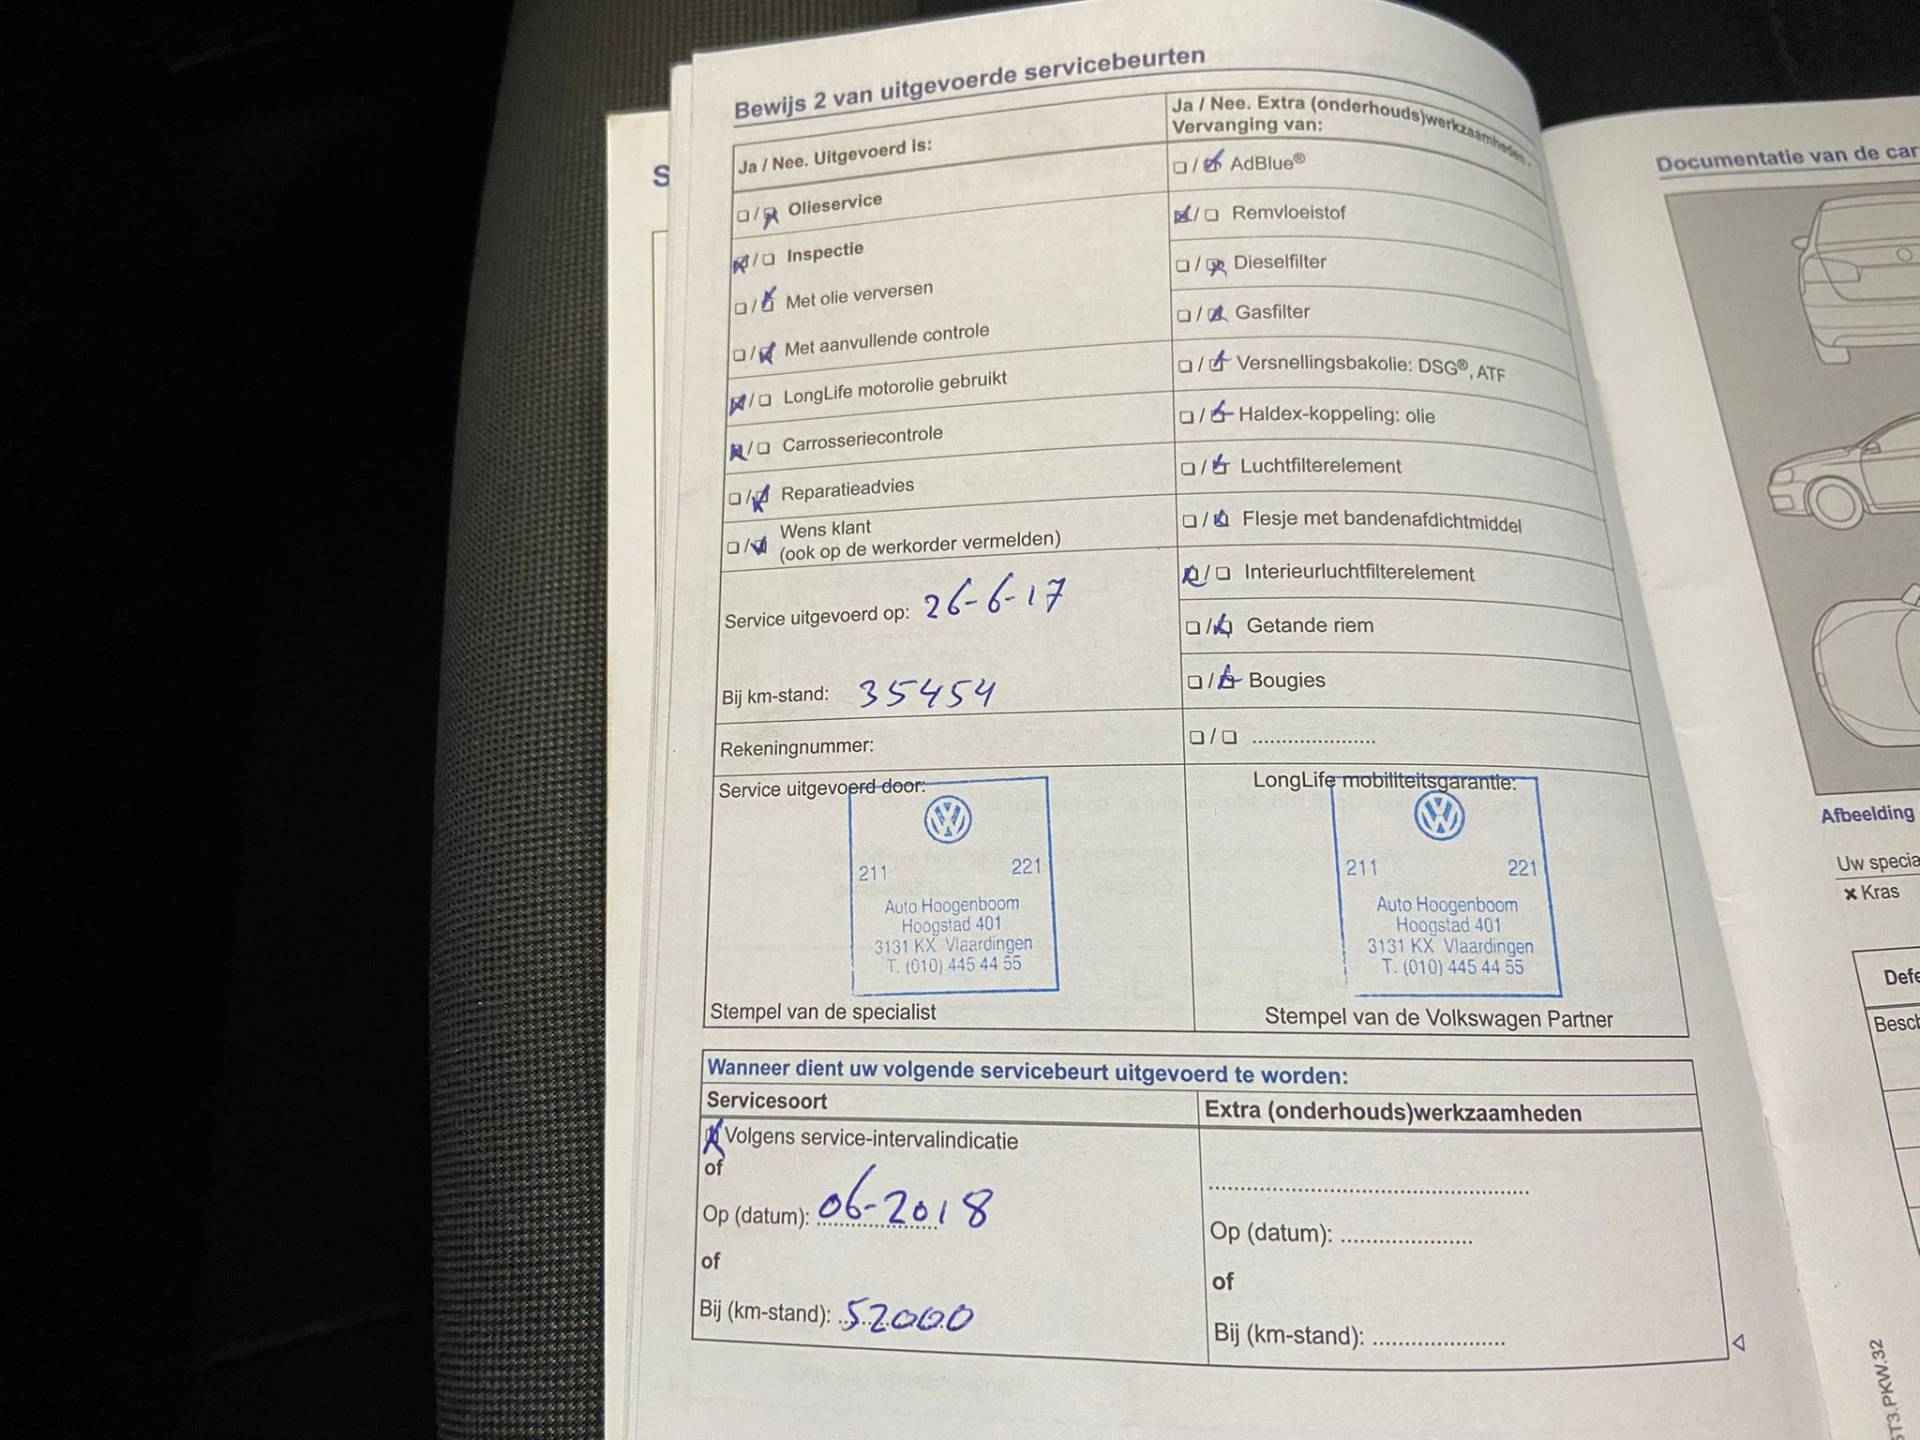 S
Bewijs 2 van uitgevoerde servicebeurten
Ja / Nee. Uitgevoerd is:
Olieservice
Inspectie
Met olie verversen
Met aanvullende controle
LongLife motorolie gebruikt
Carrosseriecontrole
Reparatieadvies
Wens klant
(ook op de werkorder vermelden)
Service uitgevoerd op: 26-6-17
Bij km-stand: 35454
Rekeningnummer:
Ja / Nee. Extra (onderhouds)werkzaamheden -
Vervanging van:
AdBlue®
Remvloeistof
Dieselfilter
Gasfilter
Versnellingsbakolie: DSG®, ATF
Haldex-koppeling: olie
Luchtfilterelement
Flesje met bandenafdichtmiddel
Interieurluchtfilterelement
Getande riem
Bougies
Service uitgevoerd door:
211 221
Auto Hoogenboom
Hoogstad 401
3131 KX Vlaardingen
T. (010) 445 44 55
Stempel van de specialist
LongLife mobiliteitsgarantie:
211 221
Auto Hoogenboom
Hoogstad 401
3131 KX Vlaardingen
T. (010) 445 44 55
Stempel van de Volkswagen Partner
Wanneer dient uw volgende servicebeurt uitgevoerd te worden:
Servicesoort
Volgens service-intervalindicatie
of
Op (datum): 06-2018
of
Bij (km-stand): 52000
Extra (onderhouds)werkzaamheden
Op (datum):
of
Bij (km-stand):
Documentatie van de car
Afbeelding
Uw specia
× Kras
Defe
Besch
5T3.PKW.32